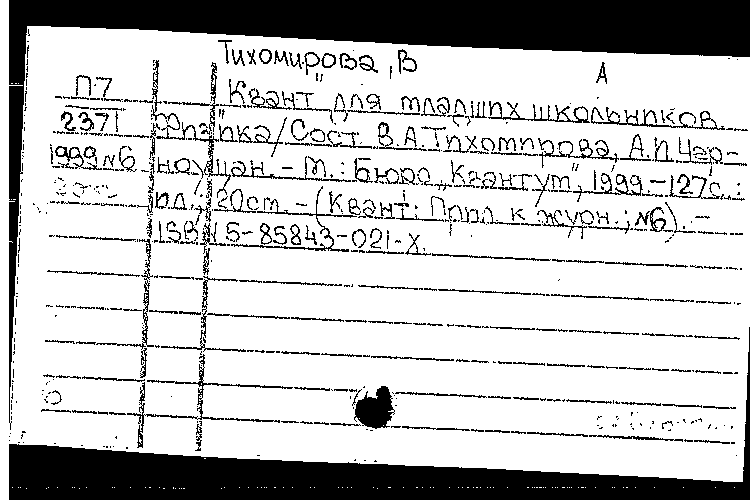 Тихомирова, В
А
П7
2371
1999 №6
"Квант" для младших школьников.
Физика/Сост. В.А.Тихомирова, А.И.Чер-
ноуцан. – М.: Бюро „Квантум", 1999.–127с.:
ил.; 20см. – (Квант: Прил. к журн.; №6). –
ISBN 5-85843-021-X.